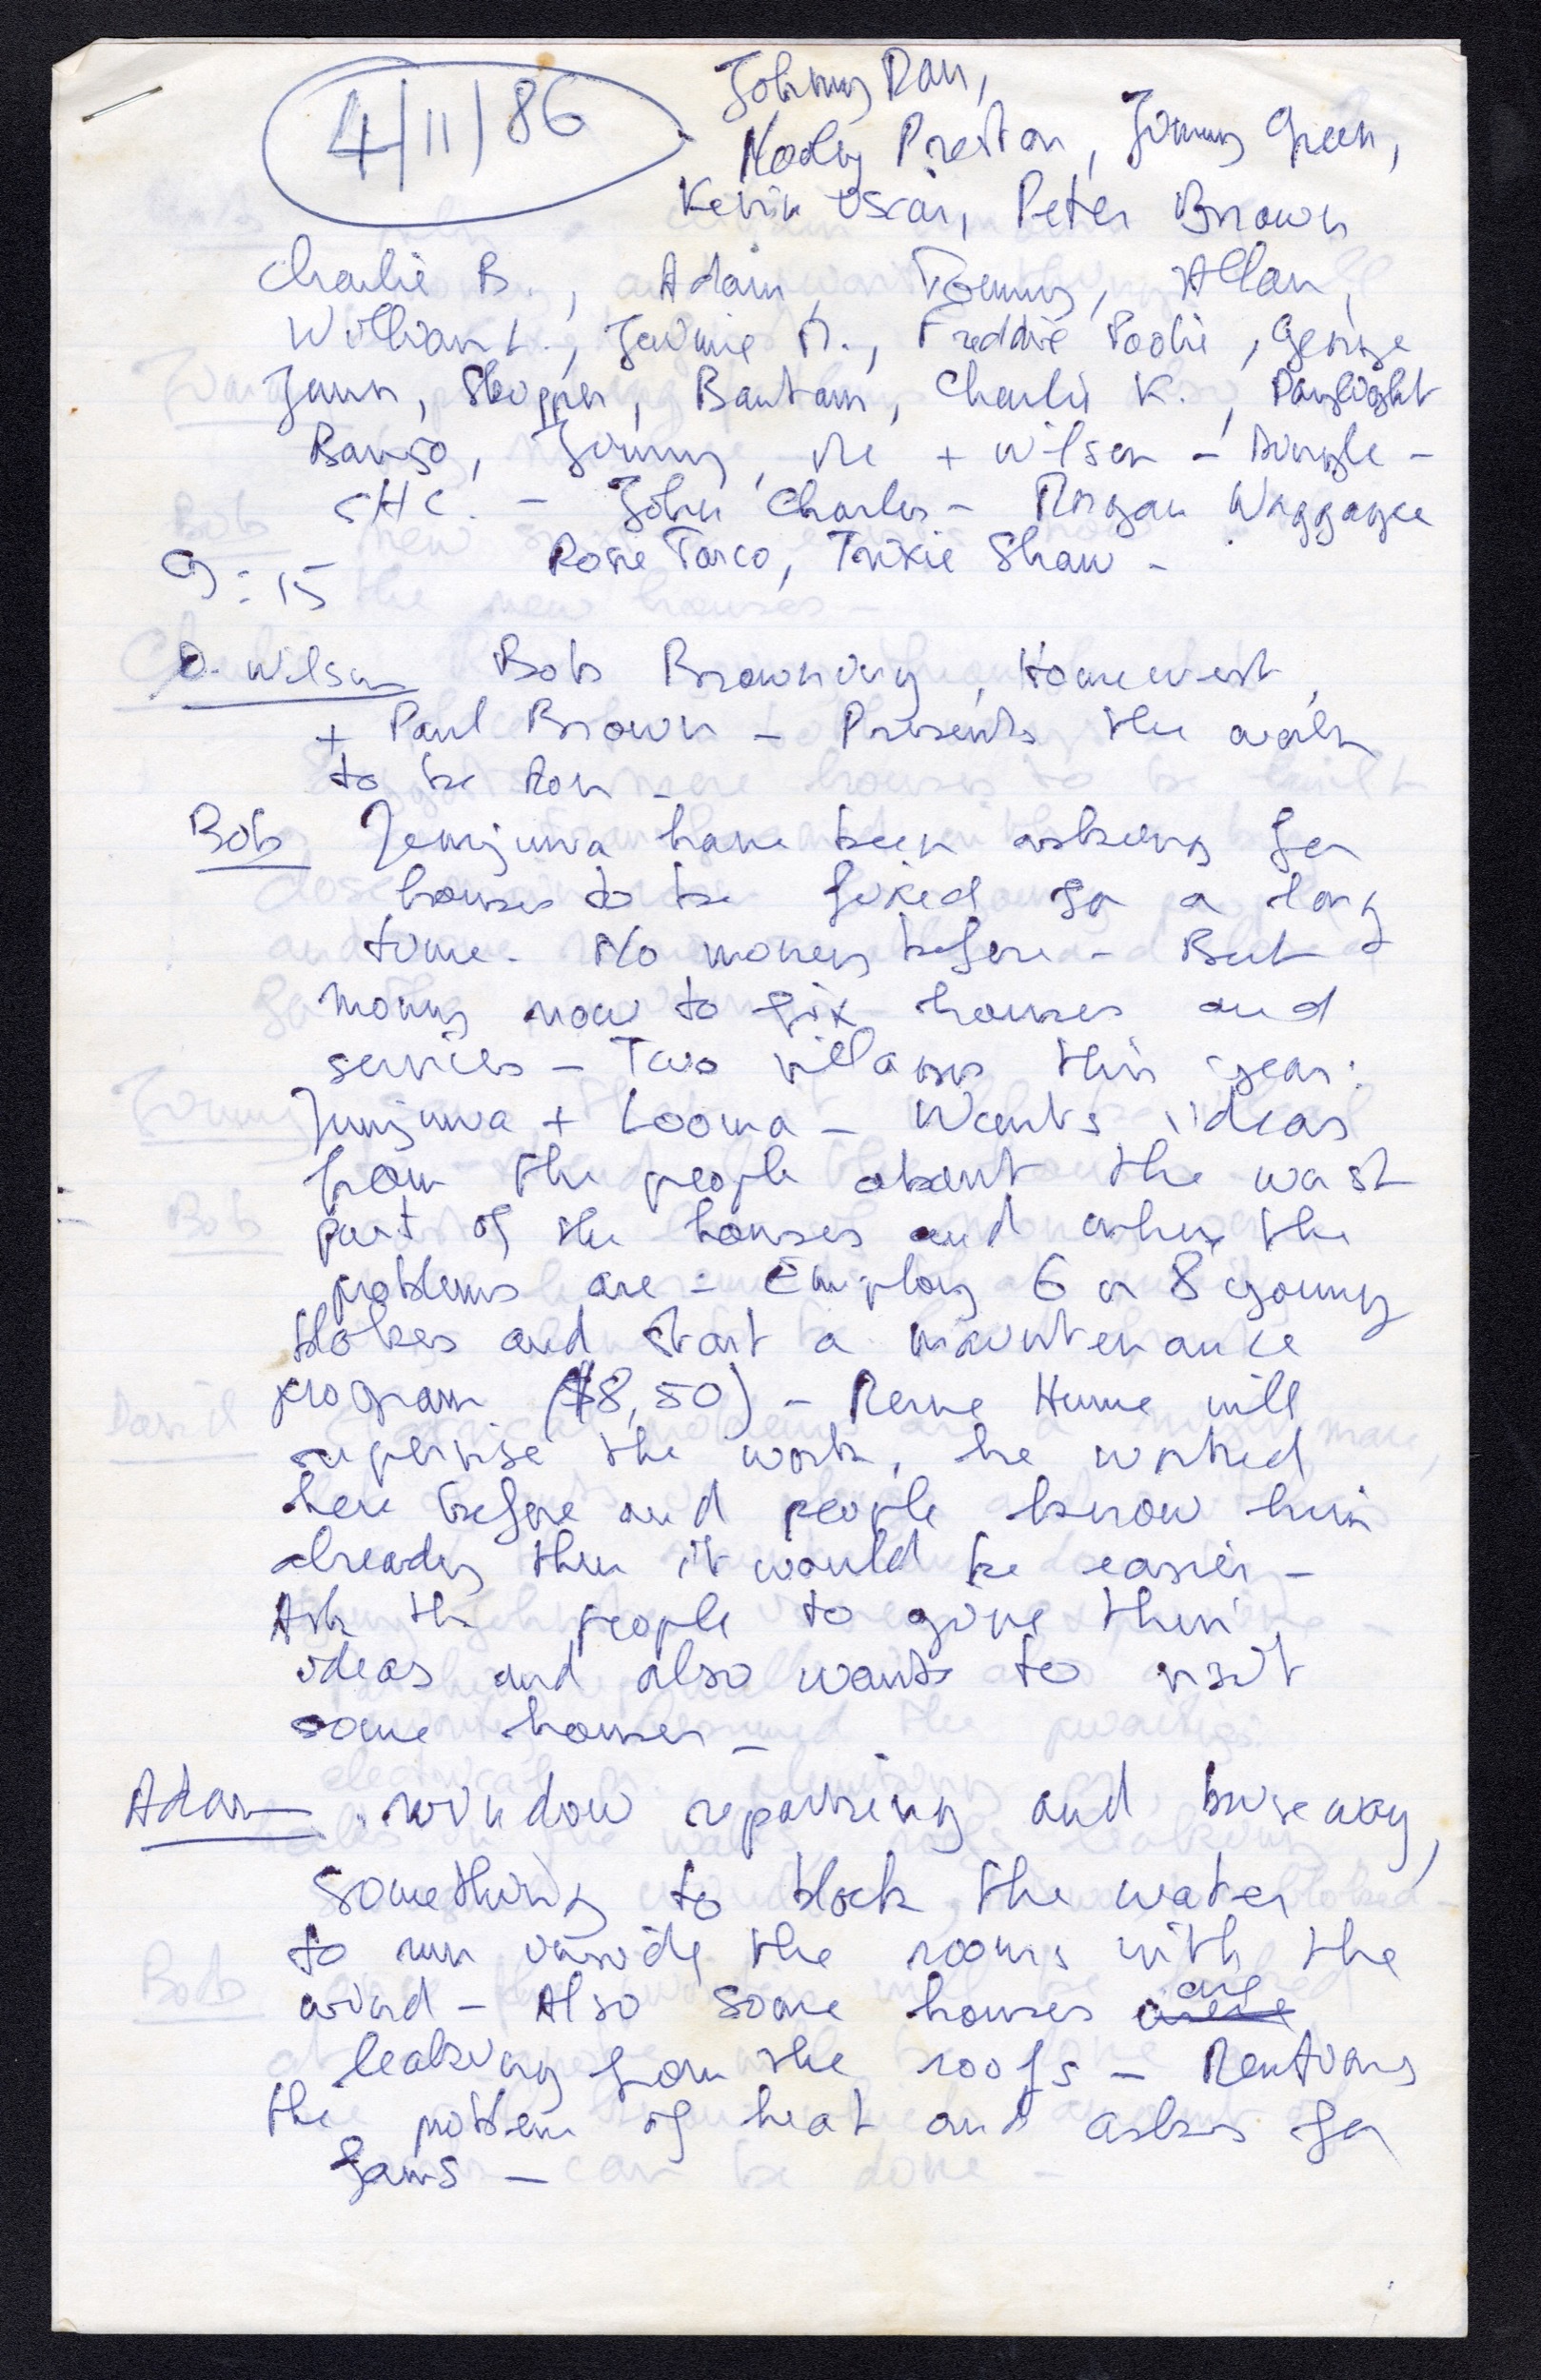 4/11/86
Johnny Ran,
Nody Preston, Jimmy Green,
Kevin Oscar, Peter Brown
Charlie B., Adam, Tommy, Allan,
William L., Jaimie M., Freddie Pootie, George
Jann, Skipper, Bantam, Charlie K., Daylight
Banjo, Jimmy, Me + Wilson - Dingle -
SHC. - John Charles - Morgan Waggagee
9:15 Rosie Tarco, Trixie Shaw -
D. Wilson Bob Browning, Homewest,
+ Paul Brown - Presents the work
to be Don -
Bob Junjuwa have been asking for
houses to be fixed for a long
time - No money before - But
Money now to fix houses and
services - Two villages this year:
Junjuwa + Looma - Wants ideas
from the people about the worst
part of the houses and where the
problems are - Employ 6 or 8 young
blokes and start a maintenance
program ($8,50) - Merve Hume will
supervise the work, he worked
here before and people know him
already then it would be easier -
Ask the people to give their
ideas and also wants to visit
some houses -
Adam window repairing and breeway,
something to block the water
to run inside the rooms with the
wind - Also some houses are
leaking from the roofs - Mentions
the problem of heat and asks for
fans -